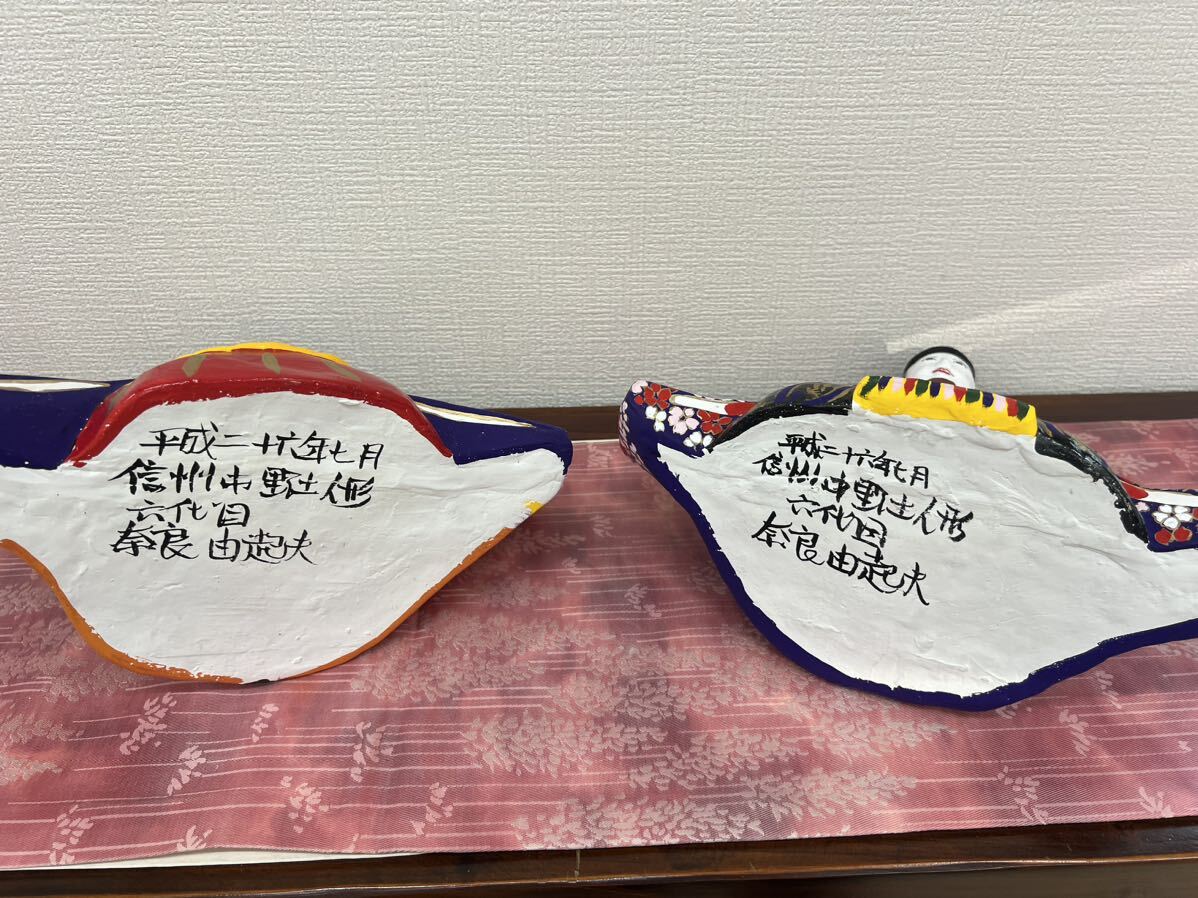 平成二十六年七月
信州中野土人形
六代目
奈良由起夫
平成二十六年七月
信州中野土人形
六代目
奈良由起夫